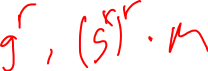 g^r, (s^r)^r · m